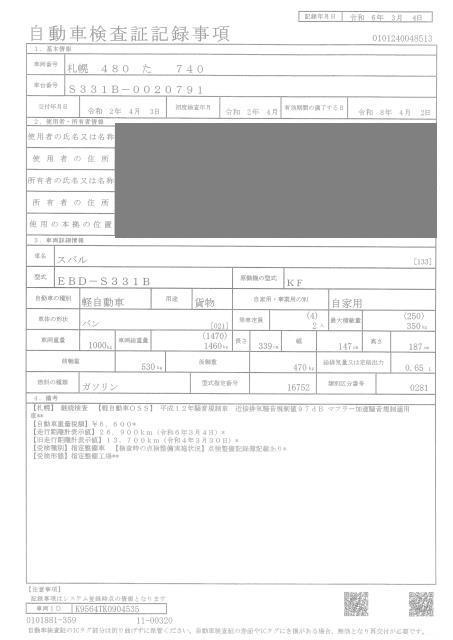 記録年月日 令和 6年 3月 4日
自動車検査証記録事項
0101240048513
1. 基本情報
車両番号 札幌 480 た 740
車台番号 S331B-0020791
交付年月日 令和 2年 4月 3日 初度検査年月 令和 2年 4月 有効期間の満了する日 令和 8年 4月 2日
2. 使用者・所有者情報
使用者の氏名又は名称
使用者の住所
所有者の氏名又は名称
所有者の住所
使用の本拠の位置
3. 車両詳細情報
車名 スバル [133]
型式 EBD-S331B 原動機の型式 KF
自動車の種別 軽自動車 用途 貨物 自家用・事業用の別 自家用
車体の形状 バン [021] 乗車定員 (4) 2人 最大積載量 (250) 350kg
車両重量 1000kg 車両総重量 (1470) 1460kg 長さ 339cm 幅 147cm 高さ 187cm
前軸重 530kg 後軸重 470kg 総排気量又は定格出力 0.65 L
燃料の種類 ガソリン 型式指定番号 16752 類別区分番号 0281
4. 備考
【札幌】 継続検査 【軽自動車OSS】 平成12年騒音規制車 近接排気騒音規制値97dB マフラー加速騒音規制適用
車**
【自動車重量税額】¥6,600*
【走行距離計表示値】26,900km(令和6年3月4日)*
【旧走行距離計表示値】13,700km(令和4年3月30日)*
【受検種別】指定整備車 【検査時の点検整備実施状況】点検整備記録簿記載あり*
【受検形態】指定整備工場**
【注意事項】
記録事項はシステム登録時点の情報となります
車両ID K9564TK0904535
0101881-359 11-00320
自動車検査証のICタグ部分は折り曲げずに保管ください。自動車検査証の券面やICタグにき損がある場合、無効となり再交付が必要です。